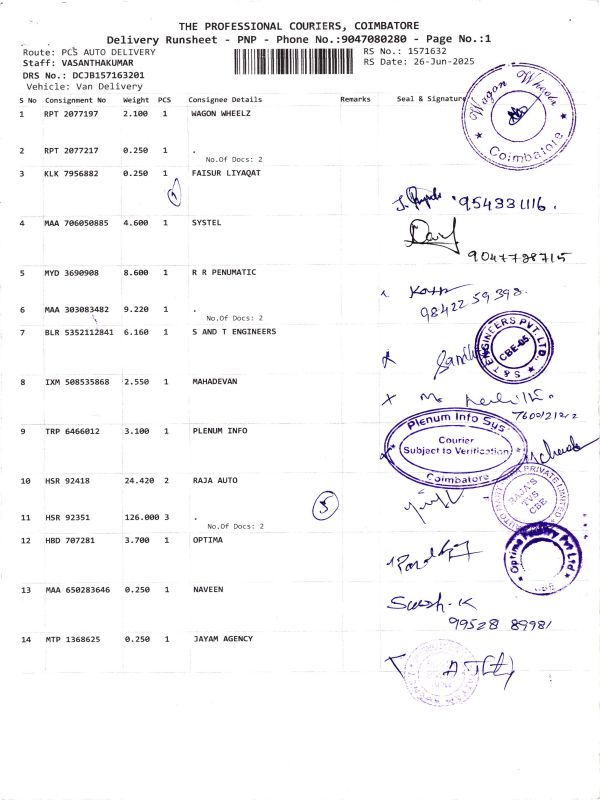 THE PROFESSIONAL COURIERS, COIMBATORE
Delivery Runsheet - PNP - Phone No.:9047080280 - Page No.:1
Route: PCS AUTO DELIVERY
RS No.: 1571632
Staff: VASANTHAKUMAR
RS Date: 26-Jun-2025
DRS No.: DCJB157163201
Vehicle: Van Delivery
S No Consignment No Weight PCS Consignee Details Remarks Seal & Signature
Wagon Wheelz
Coimbatore
1 RPT 2077197 2.100 1 WAGON WHEELZ
2 RPT 2077217 0.250 1 .
No.Of Docs: 2
3 KLK 7956882 0.250 1 FAISUR LIYAQAT
1
9543311116.
4 MAA 706050885 4.600 1 SYSTEL
9047728715
5 MYD 3690908 8.600 1 R R PENUMATIC
98422 59398.
6 MAA 303083482 9.220 1 .
No.Of Docs: 2
7 BLR 5352112841 6.160 1 S AND T ENGINEERS
S & T ENGINEERS PVT. LTD.
CBE-05
8 IXM 508535868 2.550 1 MAHADEVAN
9 TRP 6466012 3.100 1 PLENUM INFO
Plenum Info Sys
Courier
Subject to Verification
Coimbatore
10 HSR 92418 24.420 2 RAJA AUTO
RAJA'S
TVS
CBE
5
11 HSR 92351 126.000 3 .
No.Of Docs: 2
12 HBD 707281 3.700 1 OPTIMA
Optima Poultry Pvt Ltd
13 MAA 650283646 0.250 1 NAVEEN
Suresh.K
99528 89981
14 MTP 1368625 0.250 1 JAYAM AGENCY